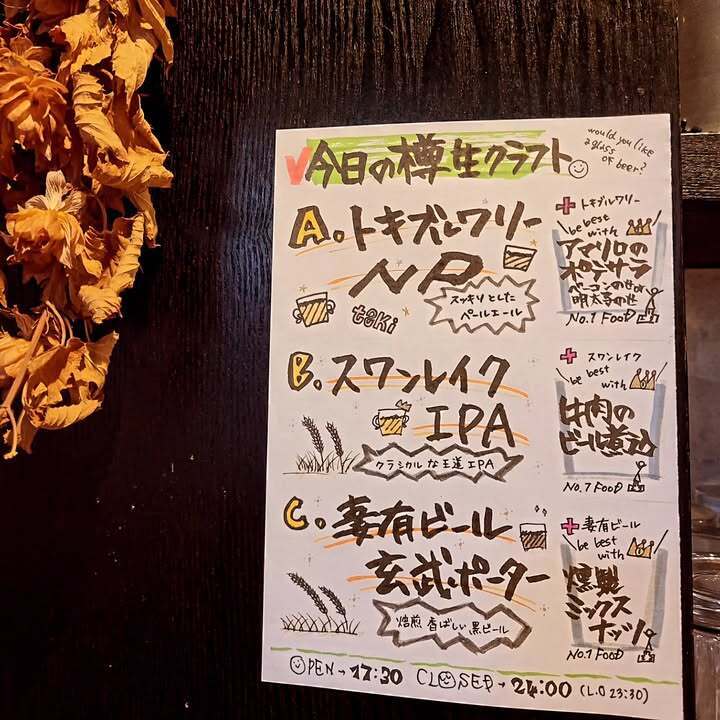 今日の樽生クラフト
would you like
a glass
of beer?
A. トキブルワリー
NP
toki
スッキリとした
ペールエール
+ トキブルワリー
be best
with
アマリロの
ポテサラ
ベーコンのせor
明太子のせ
No.1 FOOD
B. スワンレイク
IPA
クラシカルな王道IPA
+ スワンレイク
be best
with
牛肉の
ビール煮込
No.1 FOOD
C. 妻有ビール
玄武ポーター
焙煎香ばしい黒ビール
+ 妻有ビール
be best
with
燻製
ミックス
ナッツ
No.1 FOOD
OPEN→17:30 CLOSED→24:00 (L.O 23:30)